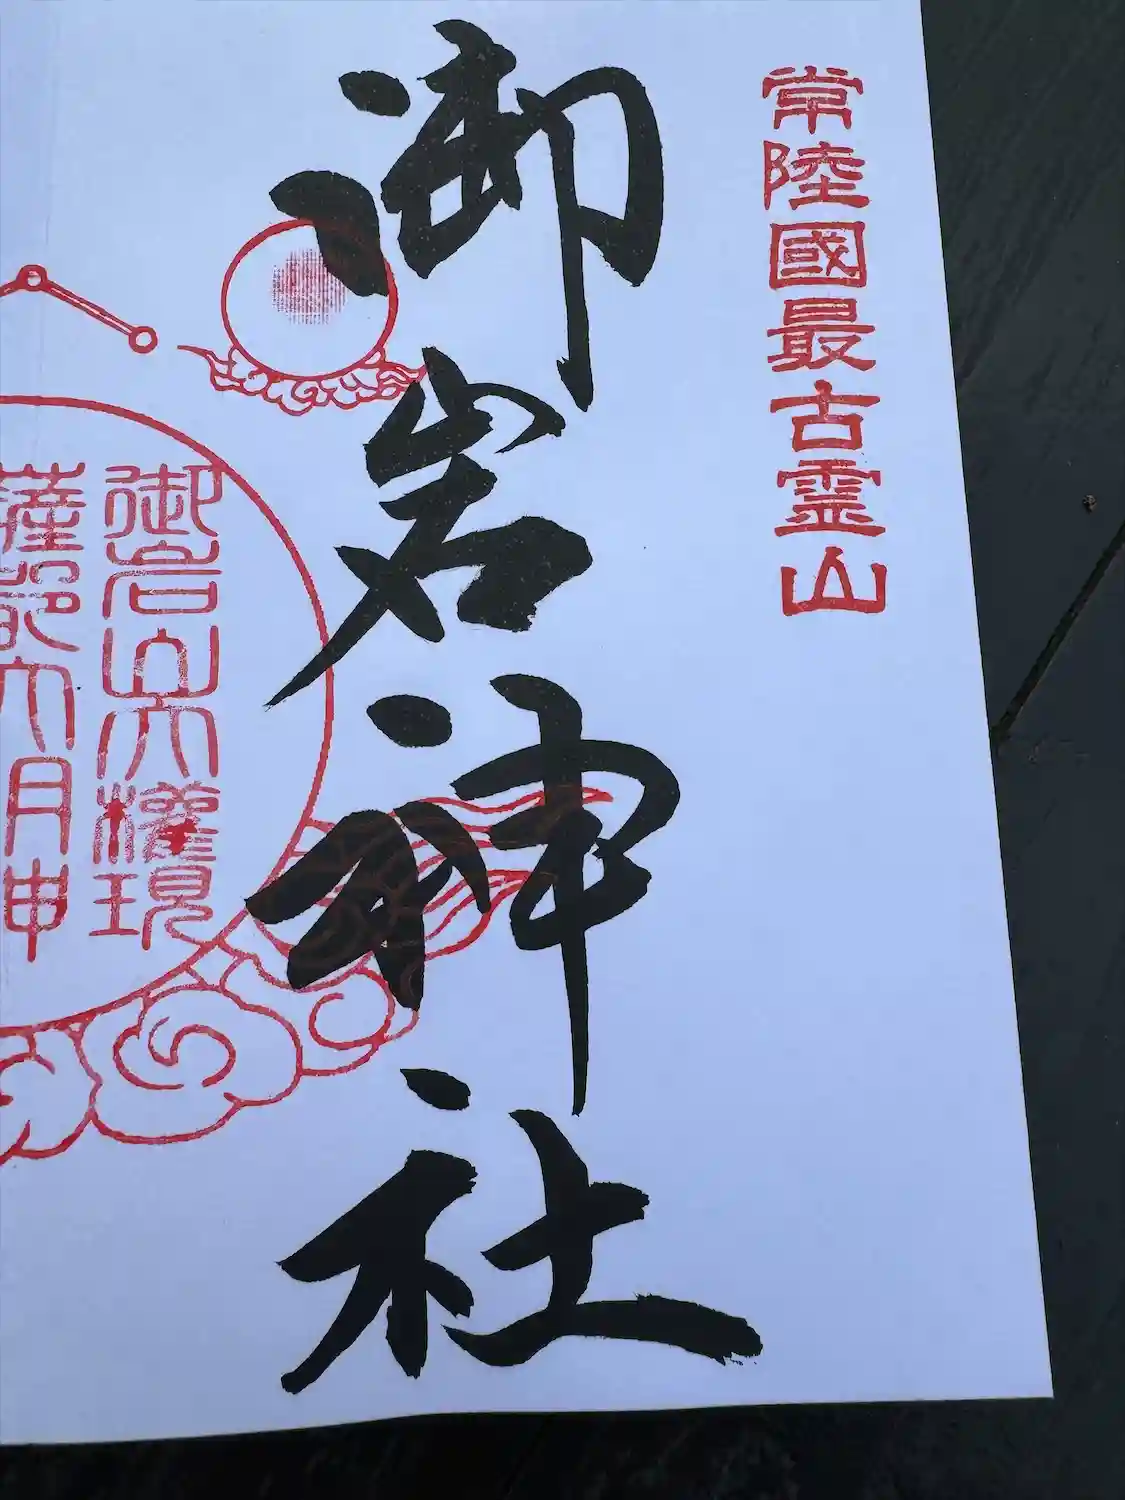 常陸國最古霊山
御岩神社
御岩山大権現
薩都大明神